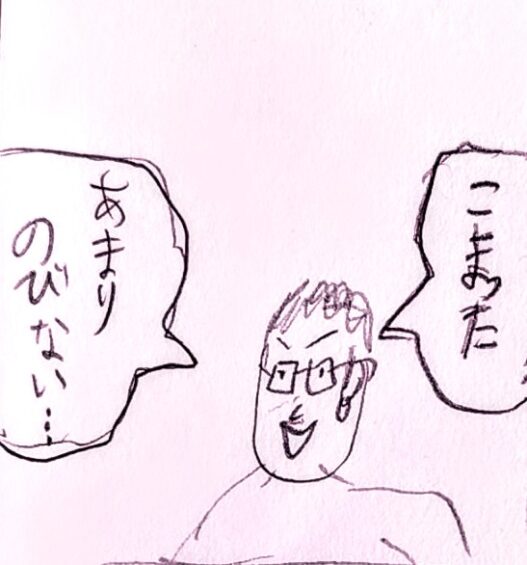 こまった
あまり
のびない…